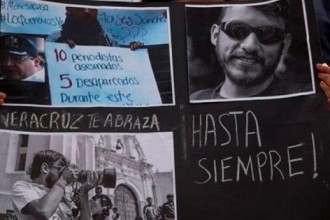 10 periodistas
asesinados
5 Desaparecidos
Durante este
VERACRUZ TE ABRAZA
HASTA
SIEMPRE!